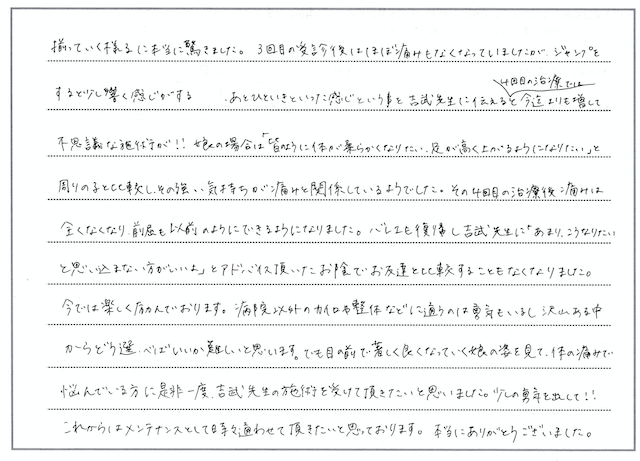 揃っていく様子に本当に驚きました。3回目の受診後はほぼ痛みもなくなっていましたが、ジャンプを
4回目の治療では
すると少し響く感じがする、あとひといきといった感じという事を吉武先生に伝えると今迄よりも増して
不思議な施術が!! 娘の場合は「皆のように体が柔らかくなりたい、足が高く上がるようになりたい」と
周りの子と比較し、その強い気持ちが痛みと関係しているようでした。その4回目の治療後痛みは
全くなくなり、前屈も以前のようにできるようになりました。バレエも復帰し吉武先生に「あまり、こうなりたい
と思い込まない方がいいよ」とアドバイス頂いたお陰でお友達と比較することもなくなりました。
今では楽しく励んでおります。病院以外のカイロや整体などに通うのは勇気もいるし沢山ある中
からどう選べばいいか難しいと思います。でも目の前で著しく良くなっていく娘の姿を見て、体の痛みで
悩んでいる方に是非一度、吉武先生の施術を受けて頂きたいと思いました。少しの勇気を出して!!
これからはメンテナンスとして時々通わせて頂きたいと思っております。本当にありがとうございました。